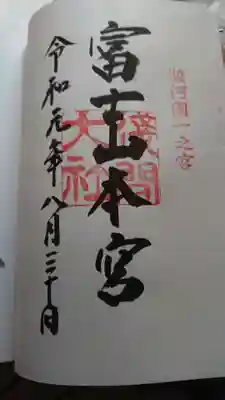 駿河國一之宮
富士山本宮
淺間
大社
令和元年八月三十日